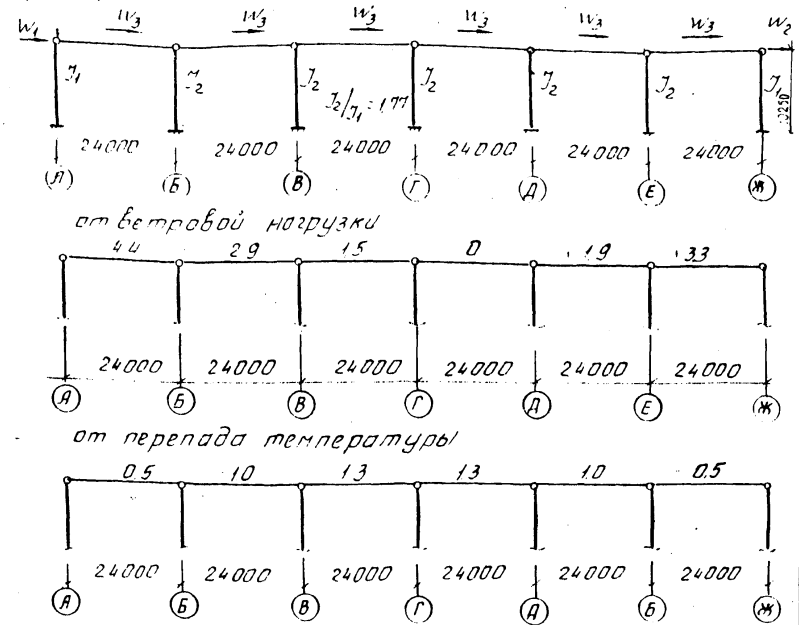 W₁ W₃ W₃ W₃ W₃ W₃ W₃ W₂
J₁ J₂ J₂ J₂ J₂ J₁
J₂/J₁ = 1,77
24000 24000 24000 24000 24000 24000
А Б В Г Д Е Ж
от ветровой нагрузки
4.4 2.9 1.5 0 1.9 3.3
24000 24000 24000 24000 24000 24000
А Б В Г Д Е Ж
от перепада температуры
0.5 1.0 1.3 1.3 1.0 0.5
24000 24000 24000 24000 24000 24000
А Б В Г Д Б Ж